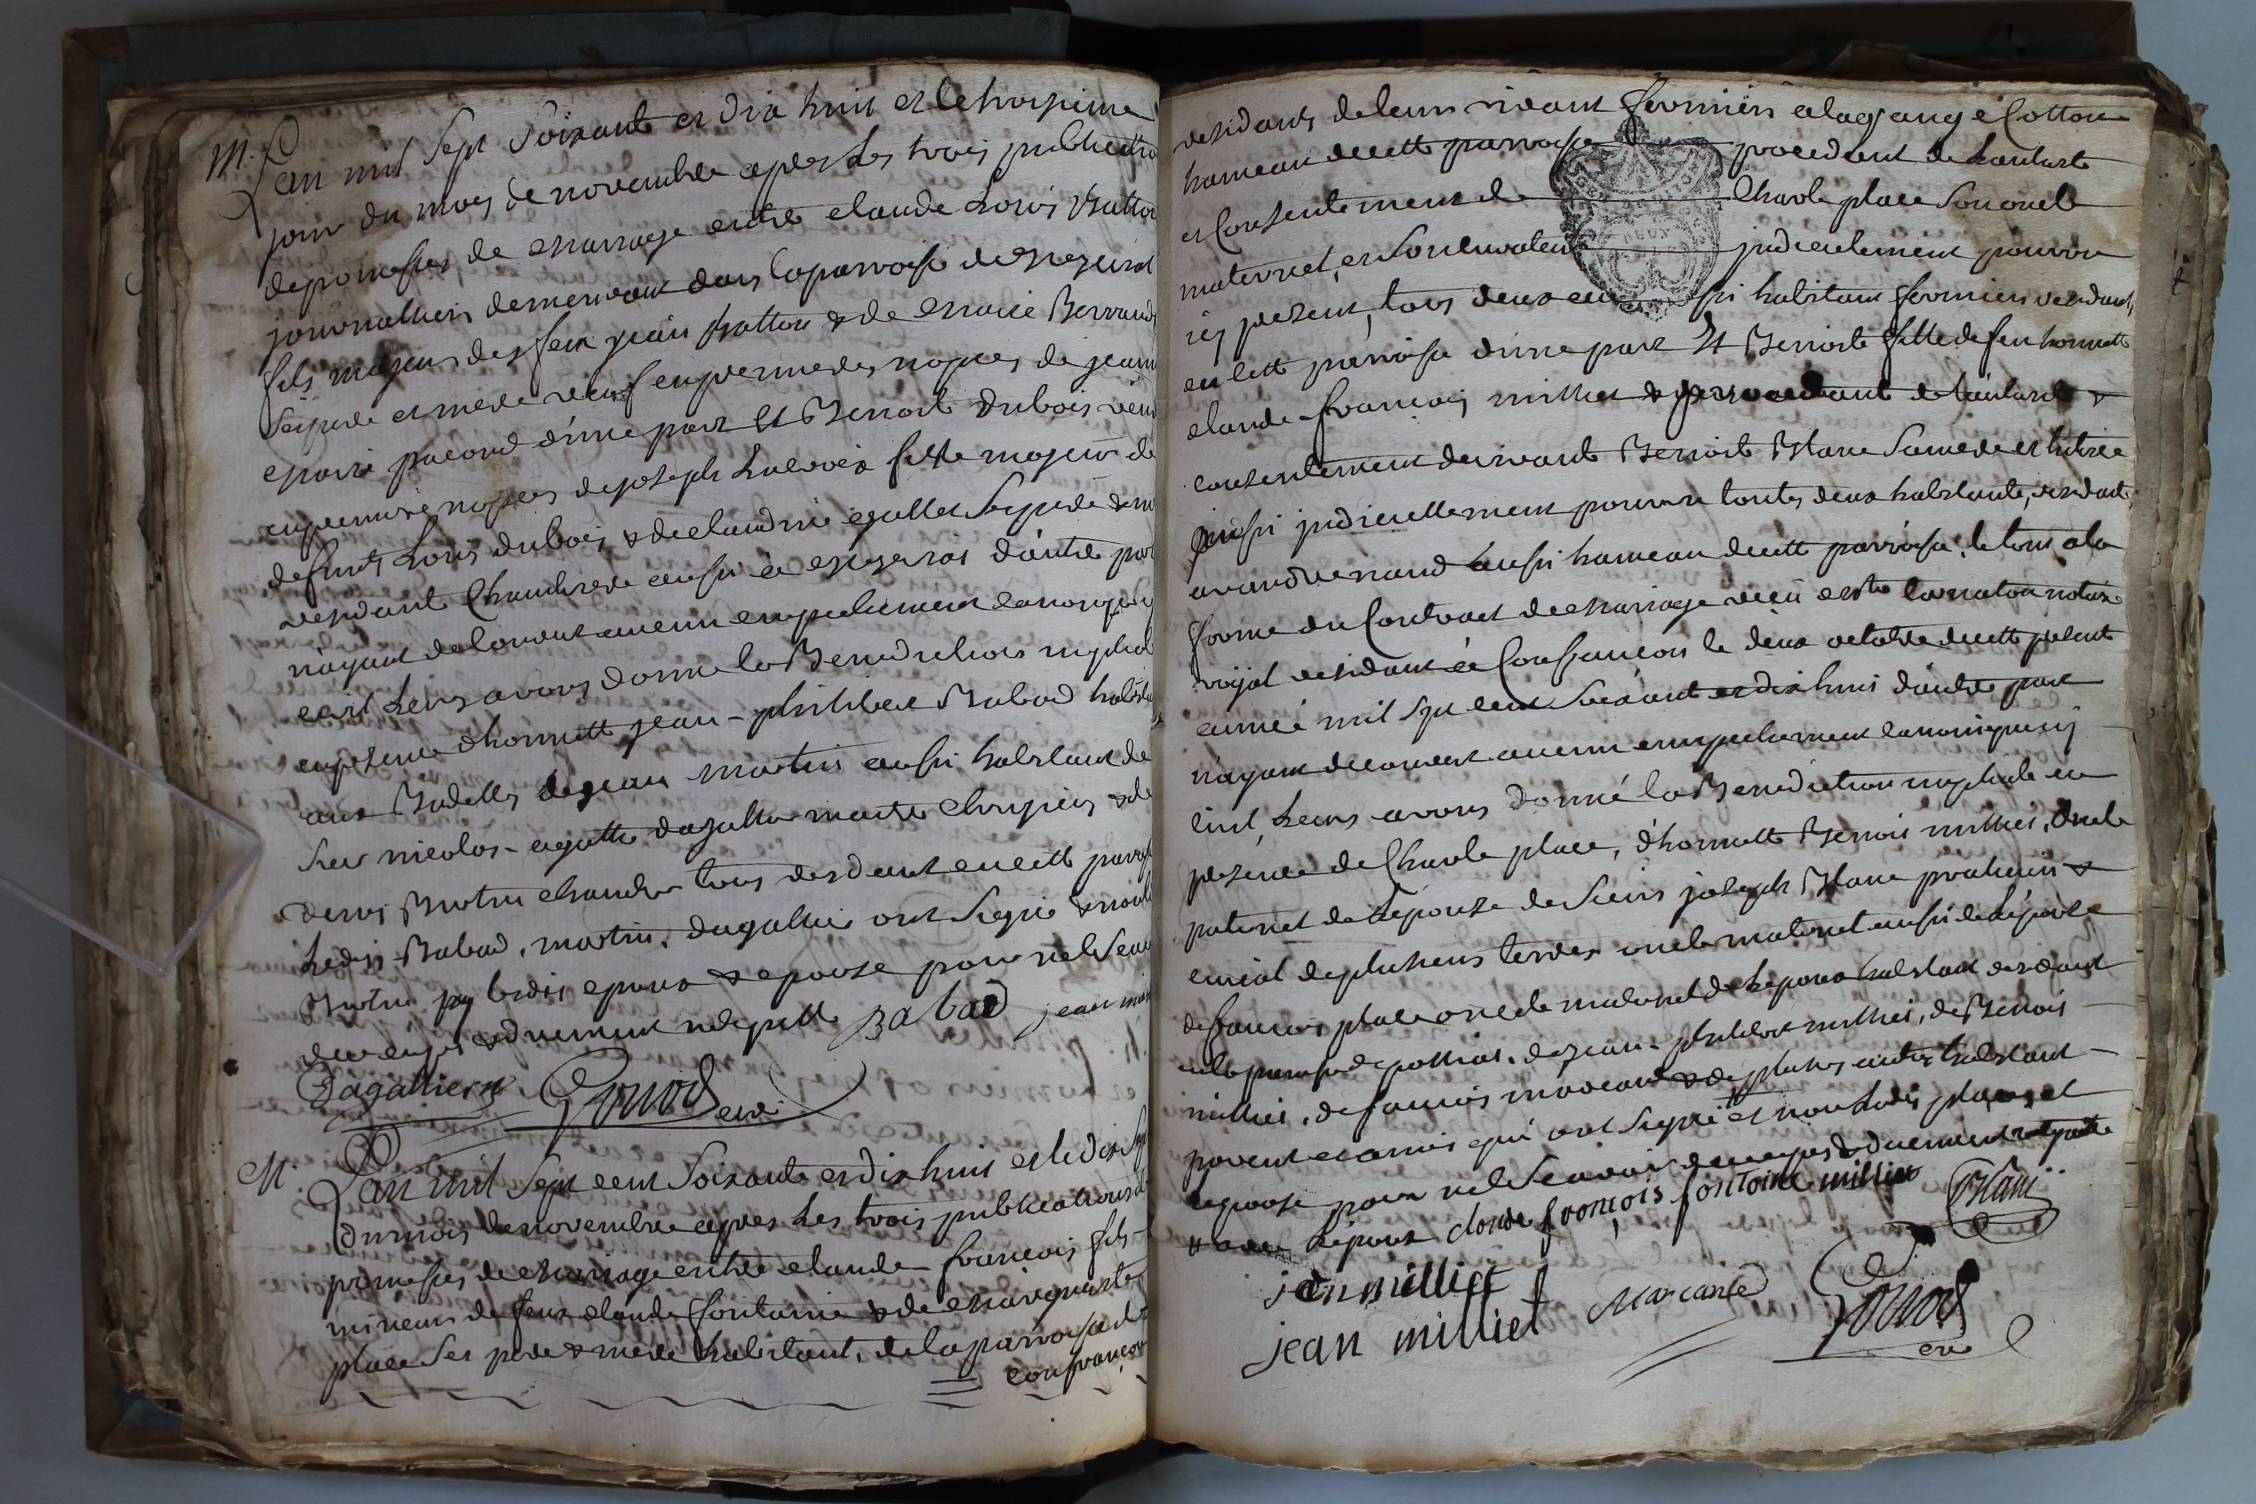 M. Lan mil Sept Soixante et dix huit et le troisieme
jour du mois de novembre apres Les trois publicatio
de promesses de mariage entre claude Louis Button
journallier demeurant dans la paroise de
fils majeur de feu jean Button & de marie Berrand
Ses pere et mere veuf en premieres nopces de jeanne
d'une part Et Benoite Dubois veuve
en premiere nopces de joseph fille majeure de
defunts Louis dubois & de claudine Ses pere & me
residante Chambrere aussi a d'autre par
n'ayant decouvert aucun empechement canonique ny
civil Leurs avons donne la Benediction nuptial
en presence d'honnette jean-philibert Babad habita
aux de jean martin aussi habitant de
Sieur nicolas-agatte dagallier maitre Chirurgien & de
denis tous residant en cette parroise
Lesdits Babad, martin, dagallier ont Signé & non le
lesdits epoux & epouse pour ne le Scavo
de ce enquis & duement interpelle Babad jean mar
Dagallier Gonod curé
M. Lan mil Sept cent Soixante et dix huit et le dix Sept
du mois de novembre apres Les trois publications de
promesses de mariage entre claude françois fils
mineur de feux claude fontaine & de marguerite
place Ses pere & mere habitant, de la parroise de
confrançon
residants de leurs vivant fermiers a la grange Cotton
hameau de cette parroise procedant de Lautorite
et Consentement de Charle place Son oncle
maternel, et Son curateur judiciellement pourvu
icy present, tous deux aussi habitant fermiers residants
en cette parroise d'une part Et Benoite fille de feu honnette
claude françois milliet & procedant de lautorite &
consentement de vivante Benoite Blanc Sa mere et tutrice
aussi judiciellement pourvue toutes deux habitante, residante
aussi hameau de cette parroise, le tout a la
forme du Contract de mariage reçû notaire
royal residant a Confrançon le deux octobre de cette presente
année mil Sept cent Soixante et dix huit d'autre part
n'ayant decouvert aucun empechement canonique ny
civil, Leurs avons donné la Benediction nuptiale en
presence de Charle place, d'honnette Benoit milliet, oncle
paternel de Lepouse de Sieur joseph Blanc praticien &
de plusieurs terres oncle maternel aussi de Lepouse
de françois place oncle maternel de Lepoux habitant residant
en la parroise de polliat, de jean-philibert milliet, de Benoit
milliet, de françois marcand & de plusieurs autres habitant
parent et amis qui ont Signé et non Lesdits place et
Lepouse pour ne le Scavoir de ce enquis & duement interpelle
& avec Lepoux claude françois fontaine milliet Blanc
jean milliet
jean milliet Marcand Gonod
curé